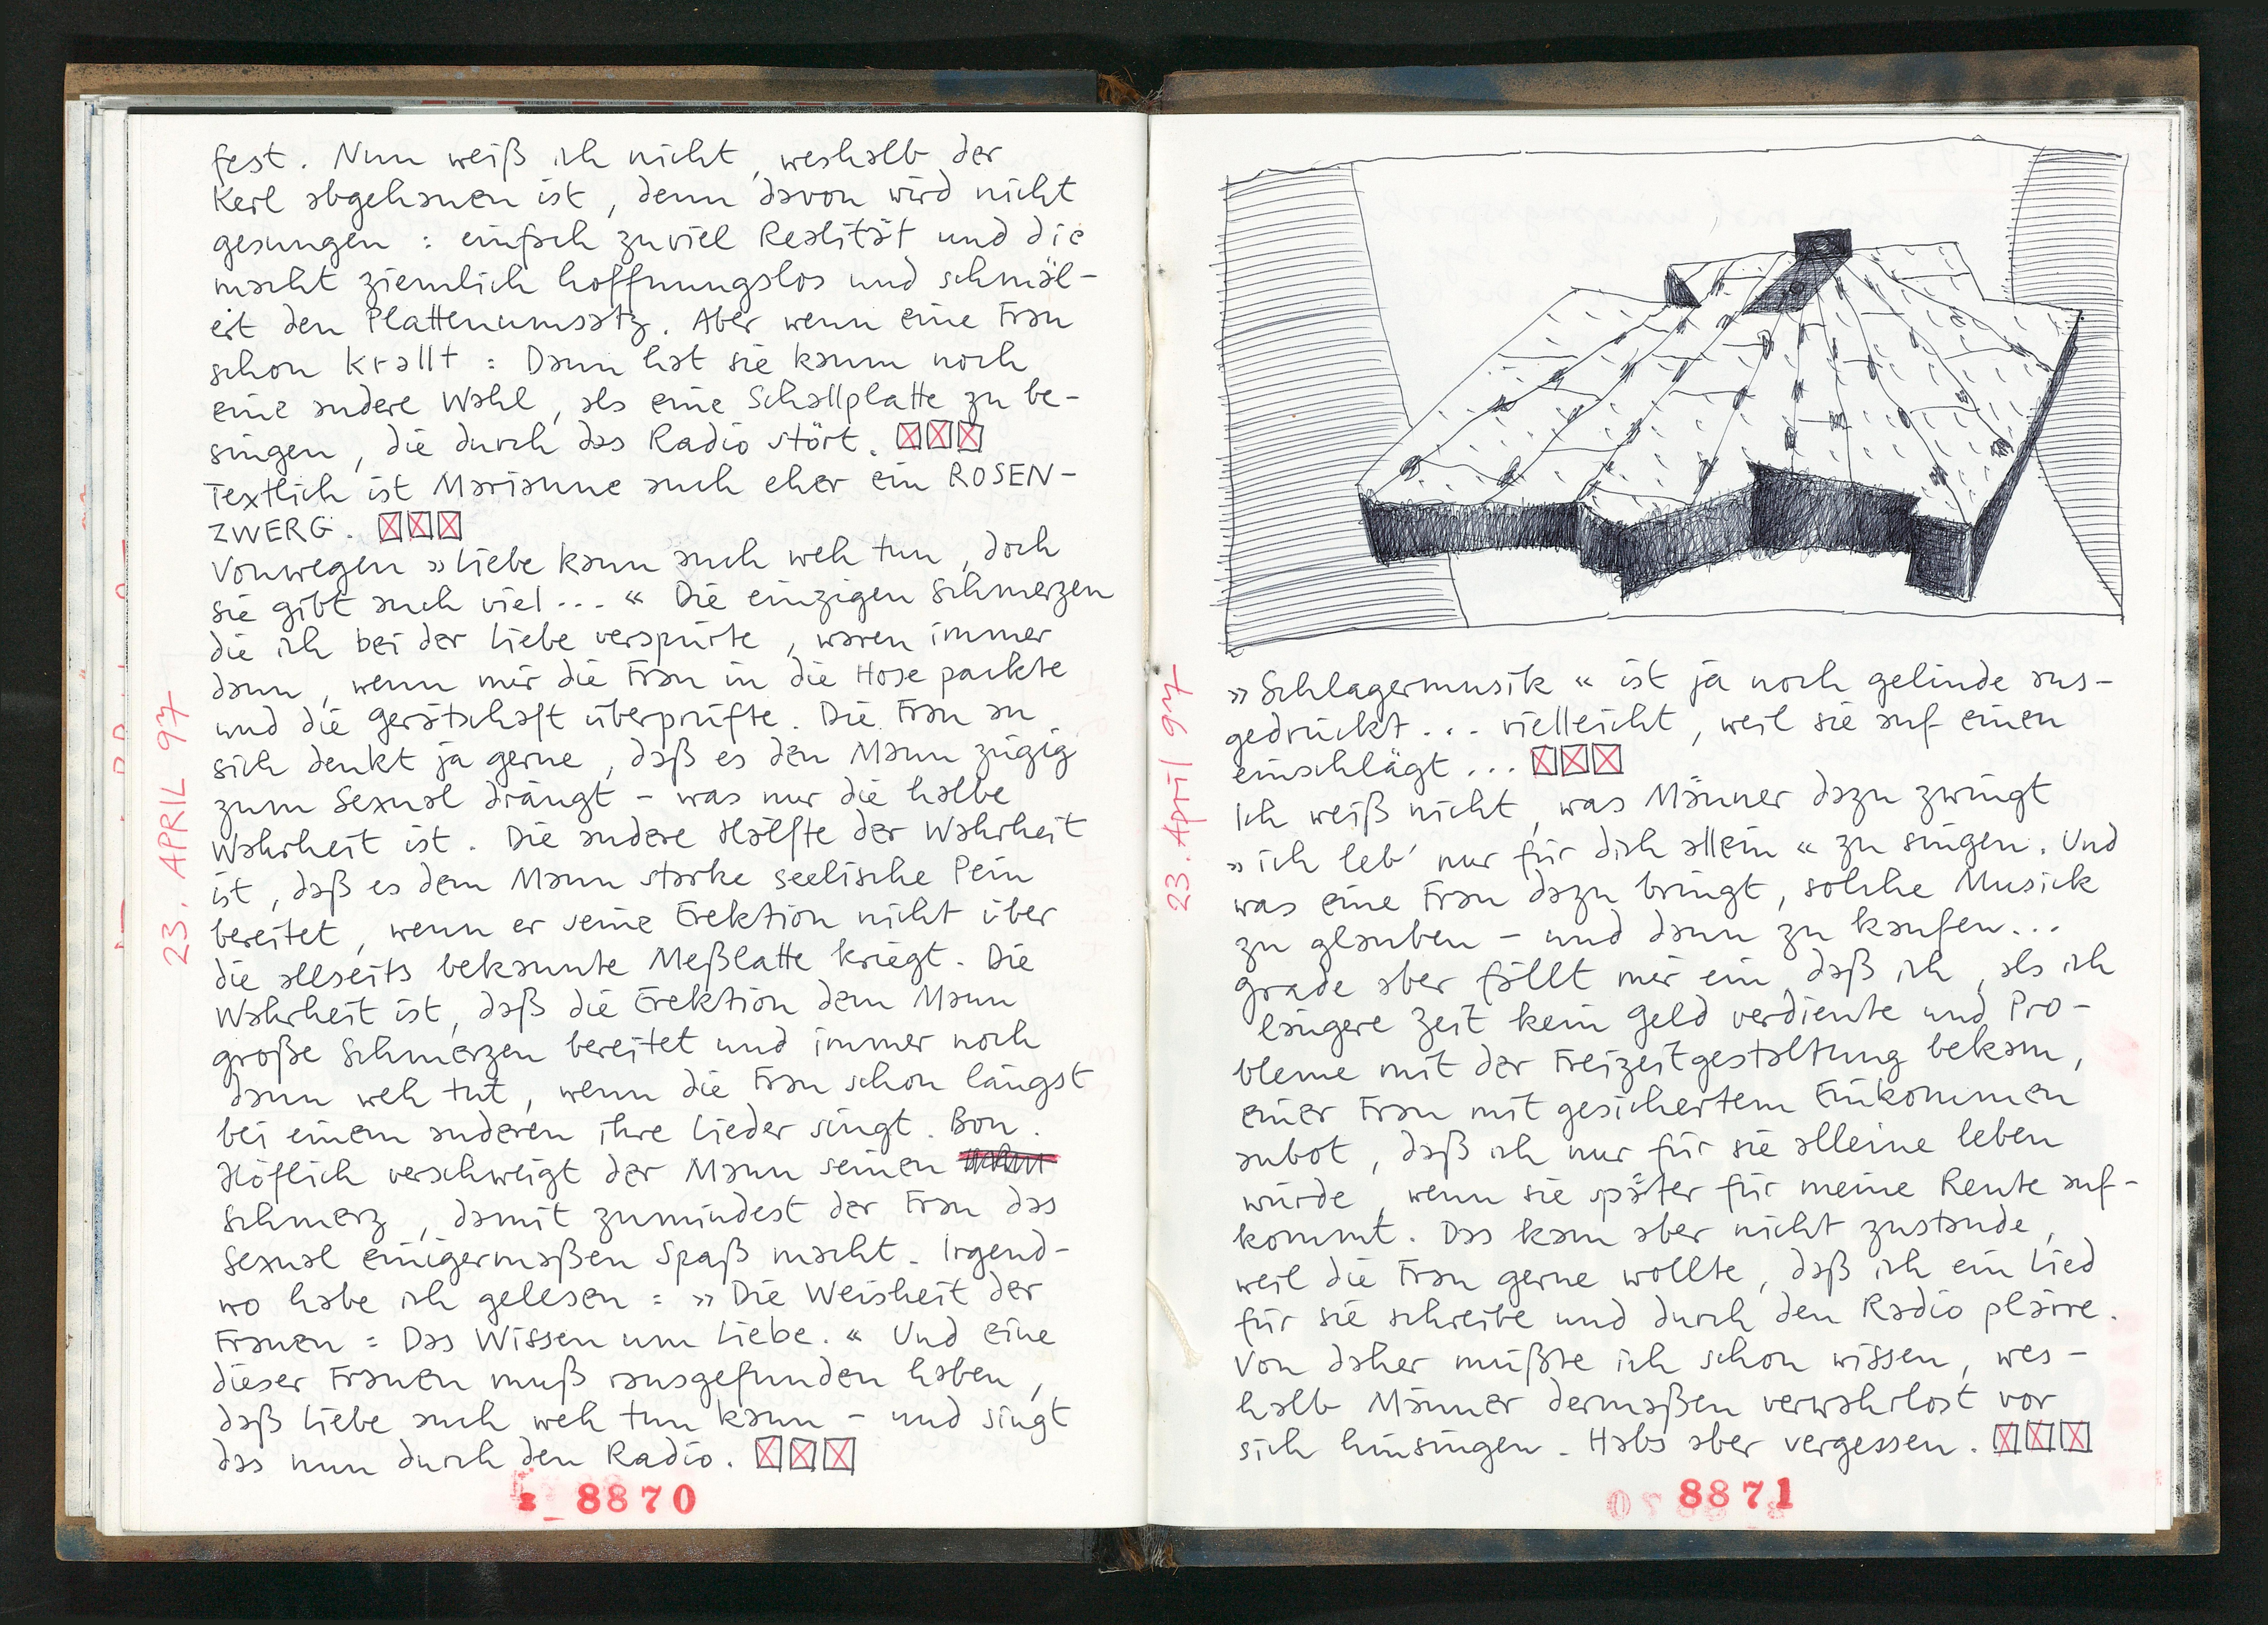 fest. Nun weiß ich nicht, weshalb der
Kerl abgehauen ist, denn davon wird nicht
gesungen: einfach zuviel Realität und die
macht ziemlich hoffnungslos und schmäl-
ert den Plattenumsatz. Aber wenn eine Frau
schon krallt: Dann hat sie kaum noch
eine andere Wahl, als eine Schallplatte zu be-
singen, die durch das Radio stört. ☒☒☒
Textlich ist Marianne auch eher ein ROSEN-
ZWERG. ☒☒☒
Vonwegen »Liebe kann auch weh tun, doch
sie gibt auch viel...« Die einzigen Schmerzen
die ich bei der Liebe verspürte, waren immer
dann, wenn mir die Frau in die Hose packte
und die Gerätschaft überprüfte. Die Frau an
sich denkt ja gerne, daß es den Mann zügig
zum Sexual drängt – was nur die halbe
Wahrheit ist. Die andere Hälfte der Wahrheit
ist, daß es dem Mann starke seelische Pein
bereitet, wenn er seine Erektion nicht über
die allseits bekannte Meßlatte kriegt. Die
Wahrheit ist, daß die Erektion dem Mann
große Schmerzen bereitet und immer noch
dann weh tut, wenn die Frau schon längst
bei einem anderen ihre Lieder singt. Bon.
Höflich verschweigt der Mann seinen
Schmerz, damit zumindest der Frau das
Sexual einigermaßen Spaß macht. Irgend-
wo habe ich gelesen: »Die Weisheit der
Frauen: Das Wissen um Liebe.« Und eine
dieser Frauen muß rausgefunden haben,
daß Liebe auch weh tun kann – und singt
das nun durch den Radio. ☒☒☒
23. APRIL 97
8870
»Schlagermusik« ist ja noch gelinde aus-
gedrückt... vielleicht, weil sie auf einen
einschlägt... ☒☒☒
Ich weiß nicht, was Männer dazu zwingt
»ich leb' nur für dich allein« zu singen. Und
was eine Frau dazu bringt, solche Musick
zu glauben – und dann zu kaufen...
grade aber fällt mir ein, daß ich, als ich
längere Zeit kein Geld verdiente und Pro-
bleme mit der Freizeitgestaltung bekam,
einer Frau mit gesichertem Einkommen
anbot, daß ich nur für sie alleine leben
würde, wenn sie später für meine Rente auf-
kommt. Das kam aber nicht zustande,
weil die Frau gerne wollte, daß ich ein Lied
für sie schreibe und durch den Radio plärre.
Von daher müßte ich schon wissen, wes-
halb Männer dermaßen verwahrlost vor
sich hinsingen. Habs aber vergessen. ☒☒☒
23. April 97
8871